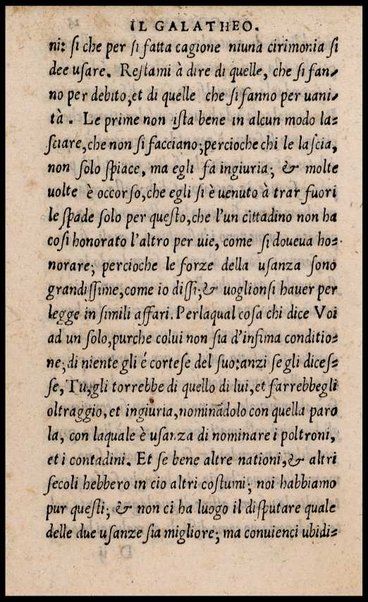 IL GALATHEO.
ni: si che per si fatta cagione niuna cirimonia si
dee usare. Restami à dire di quelle, che si fan⸗
no per debito, et di quelle che si fanno per uani⸗
tà. Le prime non ista bene in alcun modo la⸗
sciare, che non si facciano; percioche chi le lascia,
non solo spiace, ma egli fa ingiuria; & molte
uolte è occorso, che egli si è uenuto à trar fuori
le spade solo per questo, che l'un cittadino non ha
cosi honorato l'altro per uie, come si doueua ho⸗
norare; percioche le forze della usanza sono
grandissime, come io dissi; & uoglionsi hauer per
legge in simili affari. Perlaqual cosa chi dice Voi
ad un solo, purche colui non sia d'infima conditio⸗
ne; di niente gli é cortese del suo: anzi se gli dices⸗
se, Tu, gli torrebbe di quello di lui, et farrebbegli
oltraggio, et ingiuria, nominādolo con quella paro
la, con laquale è usanza di nominare i poltroni,
et i contadini. Et se bene altre nationi, & altri
secoli hebbero in cio altri costumi; noi habbiamo
pur questi; & non ci ha luogo il disputare quale
delle due usanze sia migliore; ma conuienci ubidi⸗